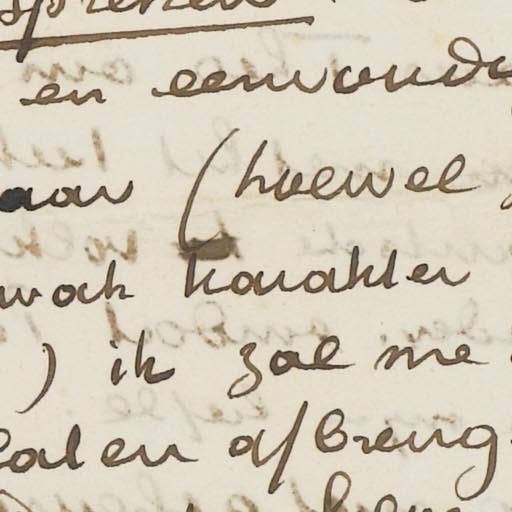 spreken
en eenvoudi
aar (hoewel
wak karakter
) ik zal me
laten afbreng